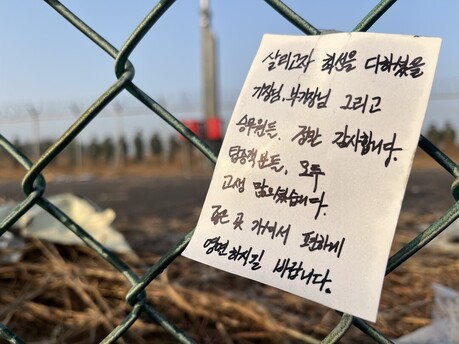 살리고자 최선을 다하셨을
기장님, 부기장님 그리고
승무원들. 정말 감사합니다.
탑승객분들, 모두
고생 많으셨습니다.
좋은 곳 가셔서 편하게
영면하시길 바랍니다.